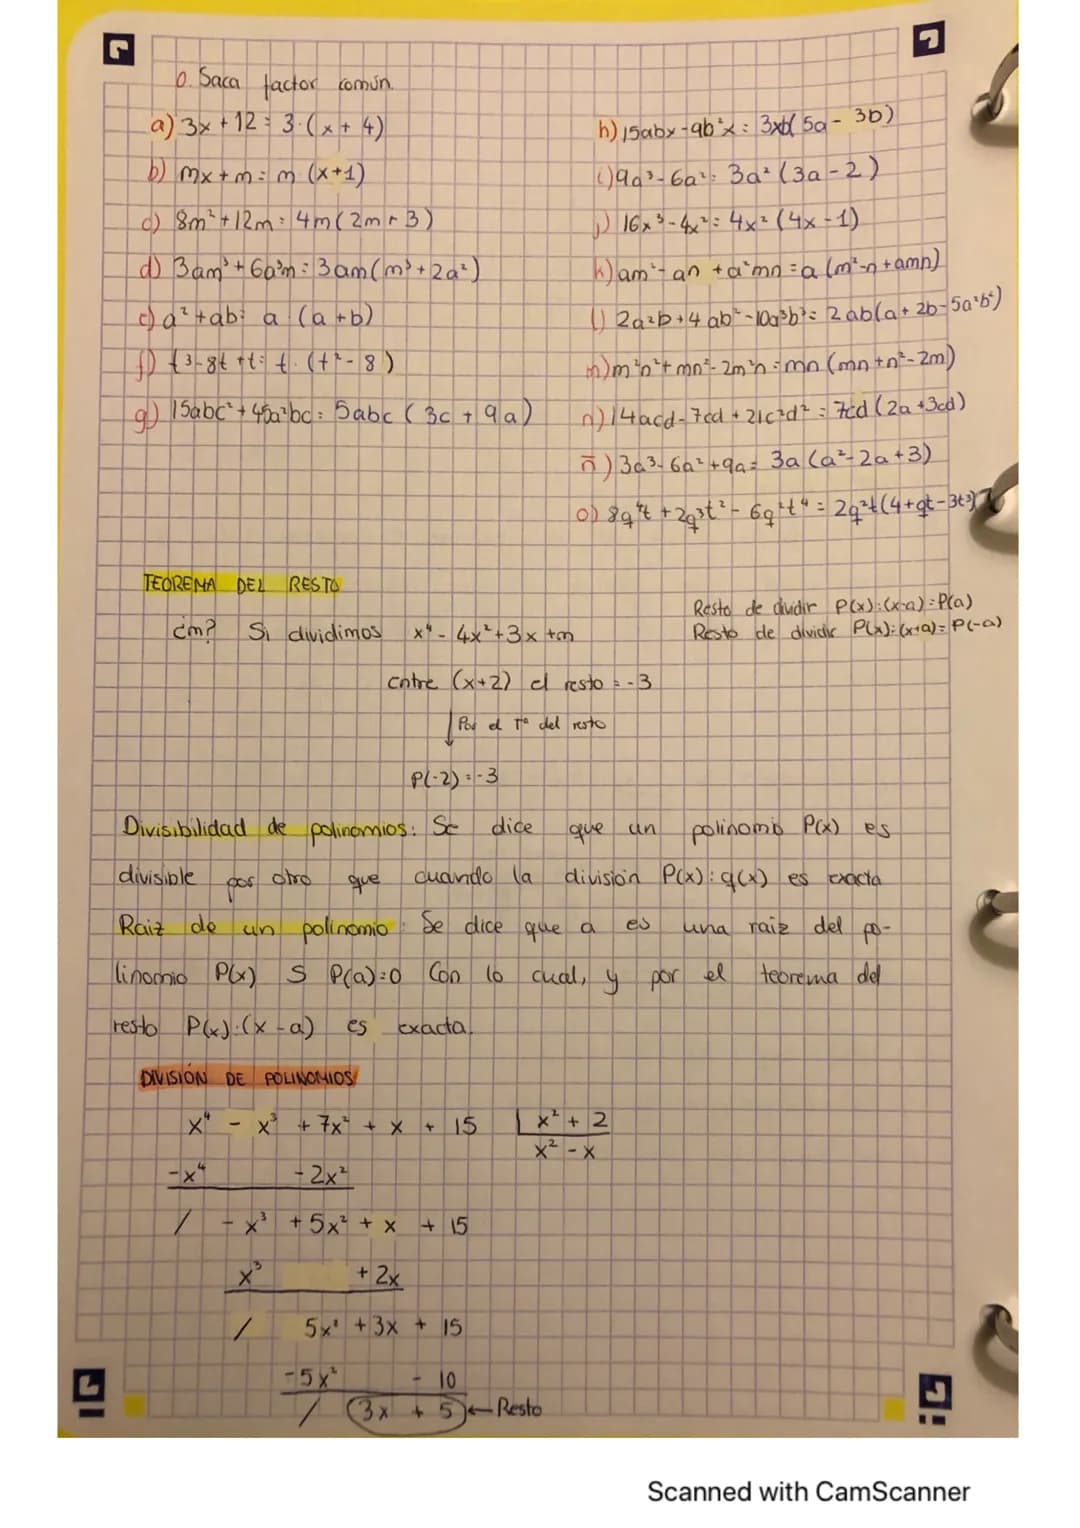 0. Saca factor común.
a) 3x + 12 = 3·(x + 4)
b) mx + m = m (x+1)
c) 8m² + 12m = 4m(2m + 3)
d) 3am³ + 6a³m = 3am(m³ + 2a²)
c) a² + ab = a (a + b)
f) t³ - 8t + t = t · (t² - 8)
g) 15abc² + 45a²bc = 5abc (3c + 9a)
h) 15abx - 9b²x = 3xb(5a - 3b)
i) 9a³ - 6a² = 3a² (3a - 2)
j) 16x³ - 4x² = 4x² (4x - 1)
k) am² - an + a²mn = a (m² - n + amn)
l) 2a²b + 4ab² - 10a³b³ = 2ab(a + 2b - 5a²b²)
m) m²n² + mn² - 2m²n = mn (mn + n² - 2m)
n) 14acd - 7cd + 21c²d² = 7cd (2a + 3cd)
ñ) 3a³ - 6a² + 9a = 3a (a² - 2a + 3)
o) 8q²t + 2q³t² - 6q²t⁴ = 2q²t(4 + qt - 3t³)
TEOREMA DEL RESTO
Resto de dividir P(x):(x-a) = P(a)
¿m? Si dividimos x⁴ - 4x² + 3x + m
Resto de dividir P(x):(x+a) = P(-a)
entre (x+2) el resto = -3
Por el Tª del resto
P(-2) = -3
Divisibilidad de polinomios: Se dice que un polinomio P(x) es
divisible por otro que cuando la división P(x) : q(x) es exacta
Raiz de un polinomio: Se dice que a es una raiz del po-
linomio P(x) S P(a)=0 Con lo cual, y por el teorema del
resto P(x):(x - a) es exacta.
DIVISIÓN DE POLINOMIOS
x⁴ - x³ + 7x² + x + 15 | x² + 2
x² - x
-x⁴ - 2x²
/ - x³ + 5x² + x + 15
x³ + 2x
/ 5x² + 3x + 15
-5x² - 10
/ 3x + 5 ← Resto
Scanned with CamScanner